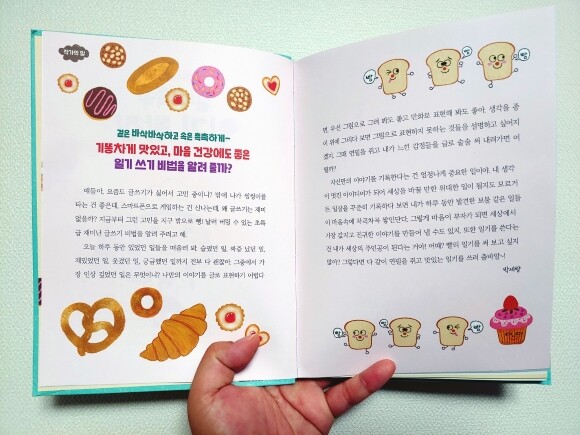 작가의 말
겉은 바삭바삭하고 속은 촉촉하게~
기똥차게 맛있고, 마음 건강에도 좋은
일기 쓰기 비법을 알려 줄까?
얘들아, 요즘도 글쓰기가 싫어서 고민 중이니? 밖에 나가 씽씽이를
타는 건 좋은데, 스마트폰으로 게임하는 건 신나는데, 왜 글쓰기는 재미
없을까? 지금부터 그런 고민을 지구 밖으로 뻥! 날려 버릴 수 있는 초특
급 재미난 글쓰기 비법을 알려 주려고 해.
오늘 하루 동안 있었던 일들을 떠올려 봐. 슬펐던 일, 짜증 났던 일,
재밌었던 일, 웃겼던 일, 궁금했던 일까지 전부 다 괜찮아. 그중에서 가
장 인상 깊었던 일은 무엇이니? 나만의 이야기를 글로 표현하기 어렵다
빵
빵
면, 우선 그림으로 그려 봐도 좋고 만화로 표현해 봐도 좋아. 생각을 종
이 위에 그리다 보면 그림으로 표현하지 못하는 것들을 설명하고 싶어지
겠지. 그때 연필을 쥐고 내가 느낀 감정들을 글로 술술 써 내려가면 어
떨까?
자신만의 이야기를 기록한다는 건 엄청나게 중요한 일이야. 내 생각
이 멋진 아이디어가 되어 세상을 바꿀 만한 위대한 일이 될지도 모르거
든. 일상을 꾸준히 기록하다 보면 내가 하루 동안 발견한 보물 같은 일들
이 마음속에 차곡차곡 쌓인단다. 그렇게 마음이 부자가 되면 세상에서
가장 값지고 진귀한 이야기를 만들어 낼 수도 있지. 또한 일기를 쓴다는
건 내가 세상의 주인공이 된다는 거야! 어때? 빨리 일기를 써 보고 싶지
않아? 그렇다면 다 같이 연필을 쥐고 맛있는 일기를 쓰러 출바알~!
빵
빵